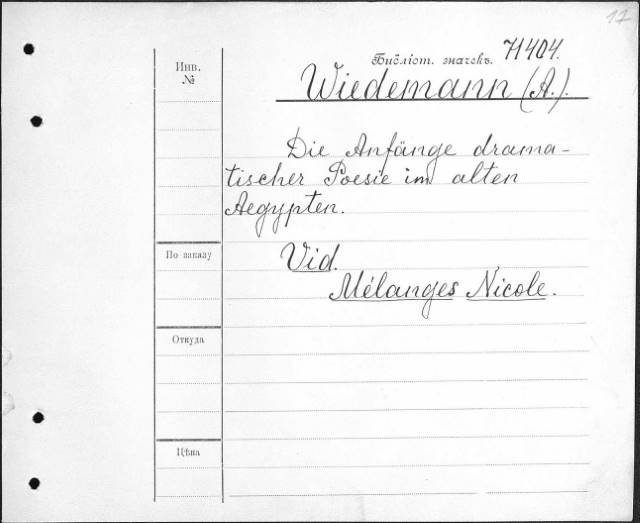 12
Библіот. значекъ. 71404.
Инв.
№
Wiedemann (A.).
Die Anfänge drama-
tischer Poesie im alten
Aegypten.
По заказу
Vid.
Mélanges Nicole.
Откуда
Цѣна